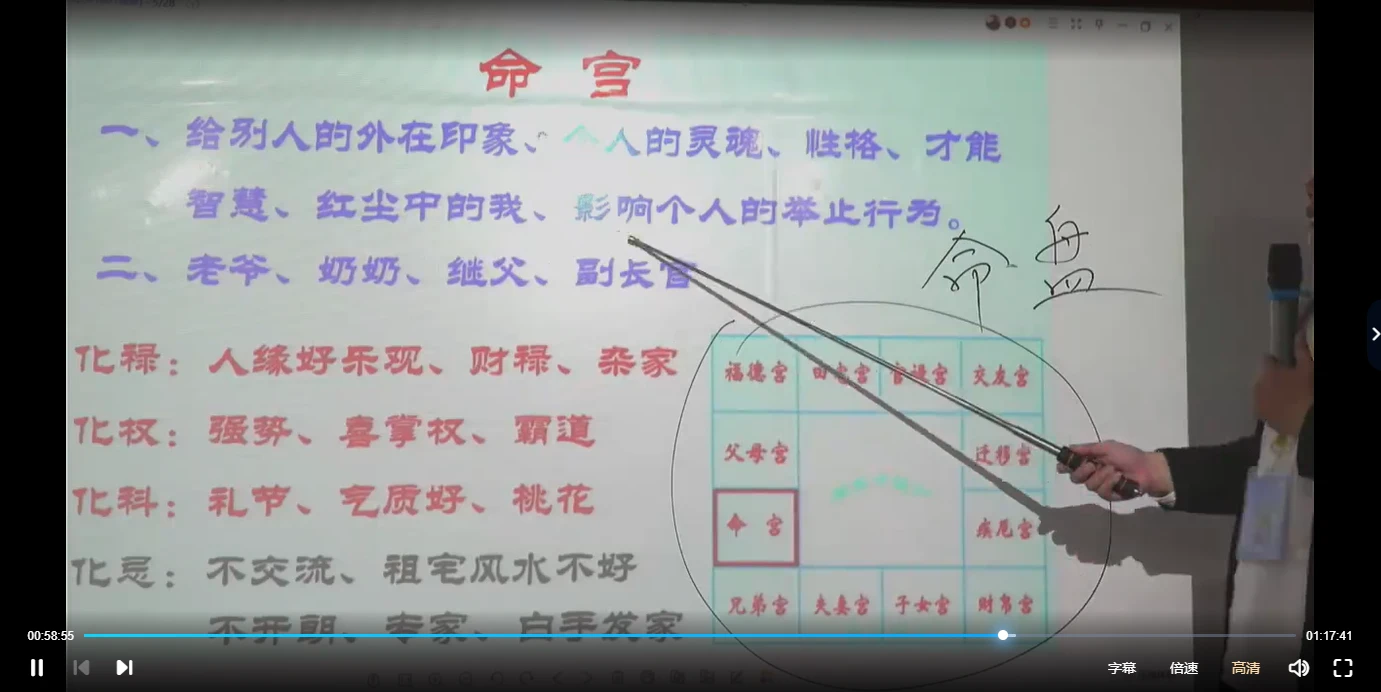 命宫
一、给别人的外在印象、个人的灵魂、性格、才能
智慧、红尘中的我、影响个人的举止行为。
二、老爷、奶奶、继父、副长官
命盘
化禄：人缘好乐观、财禄、杂家
化权：强势、喜掌权、霸道
化科：礼节、气质好、桃花
化忌：不交流、祖宅风水不好
不开朗、专家、白手发家
福德宫 田宅宫 官禄宫 交友宫
父母宫 迁移宫
命宫 疾厄宫
兄弟宫 夫妻宫 子女宫 财帛宫
00:58:55 01:17:41
字幕 倍速 高清